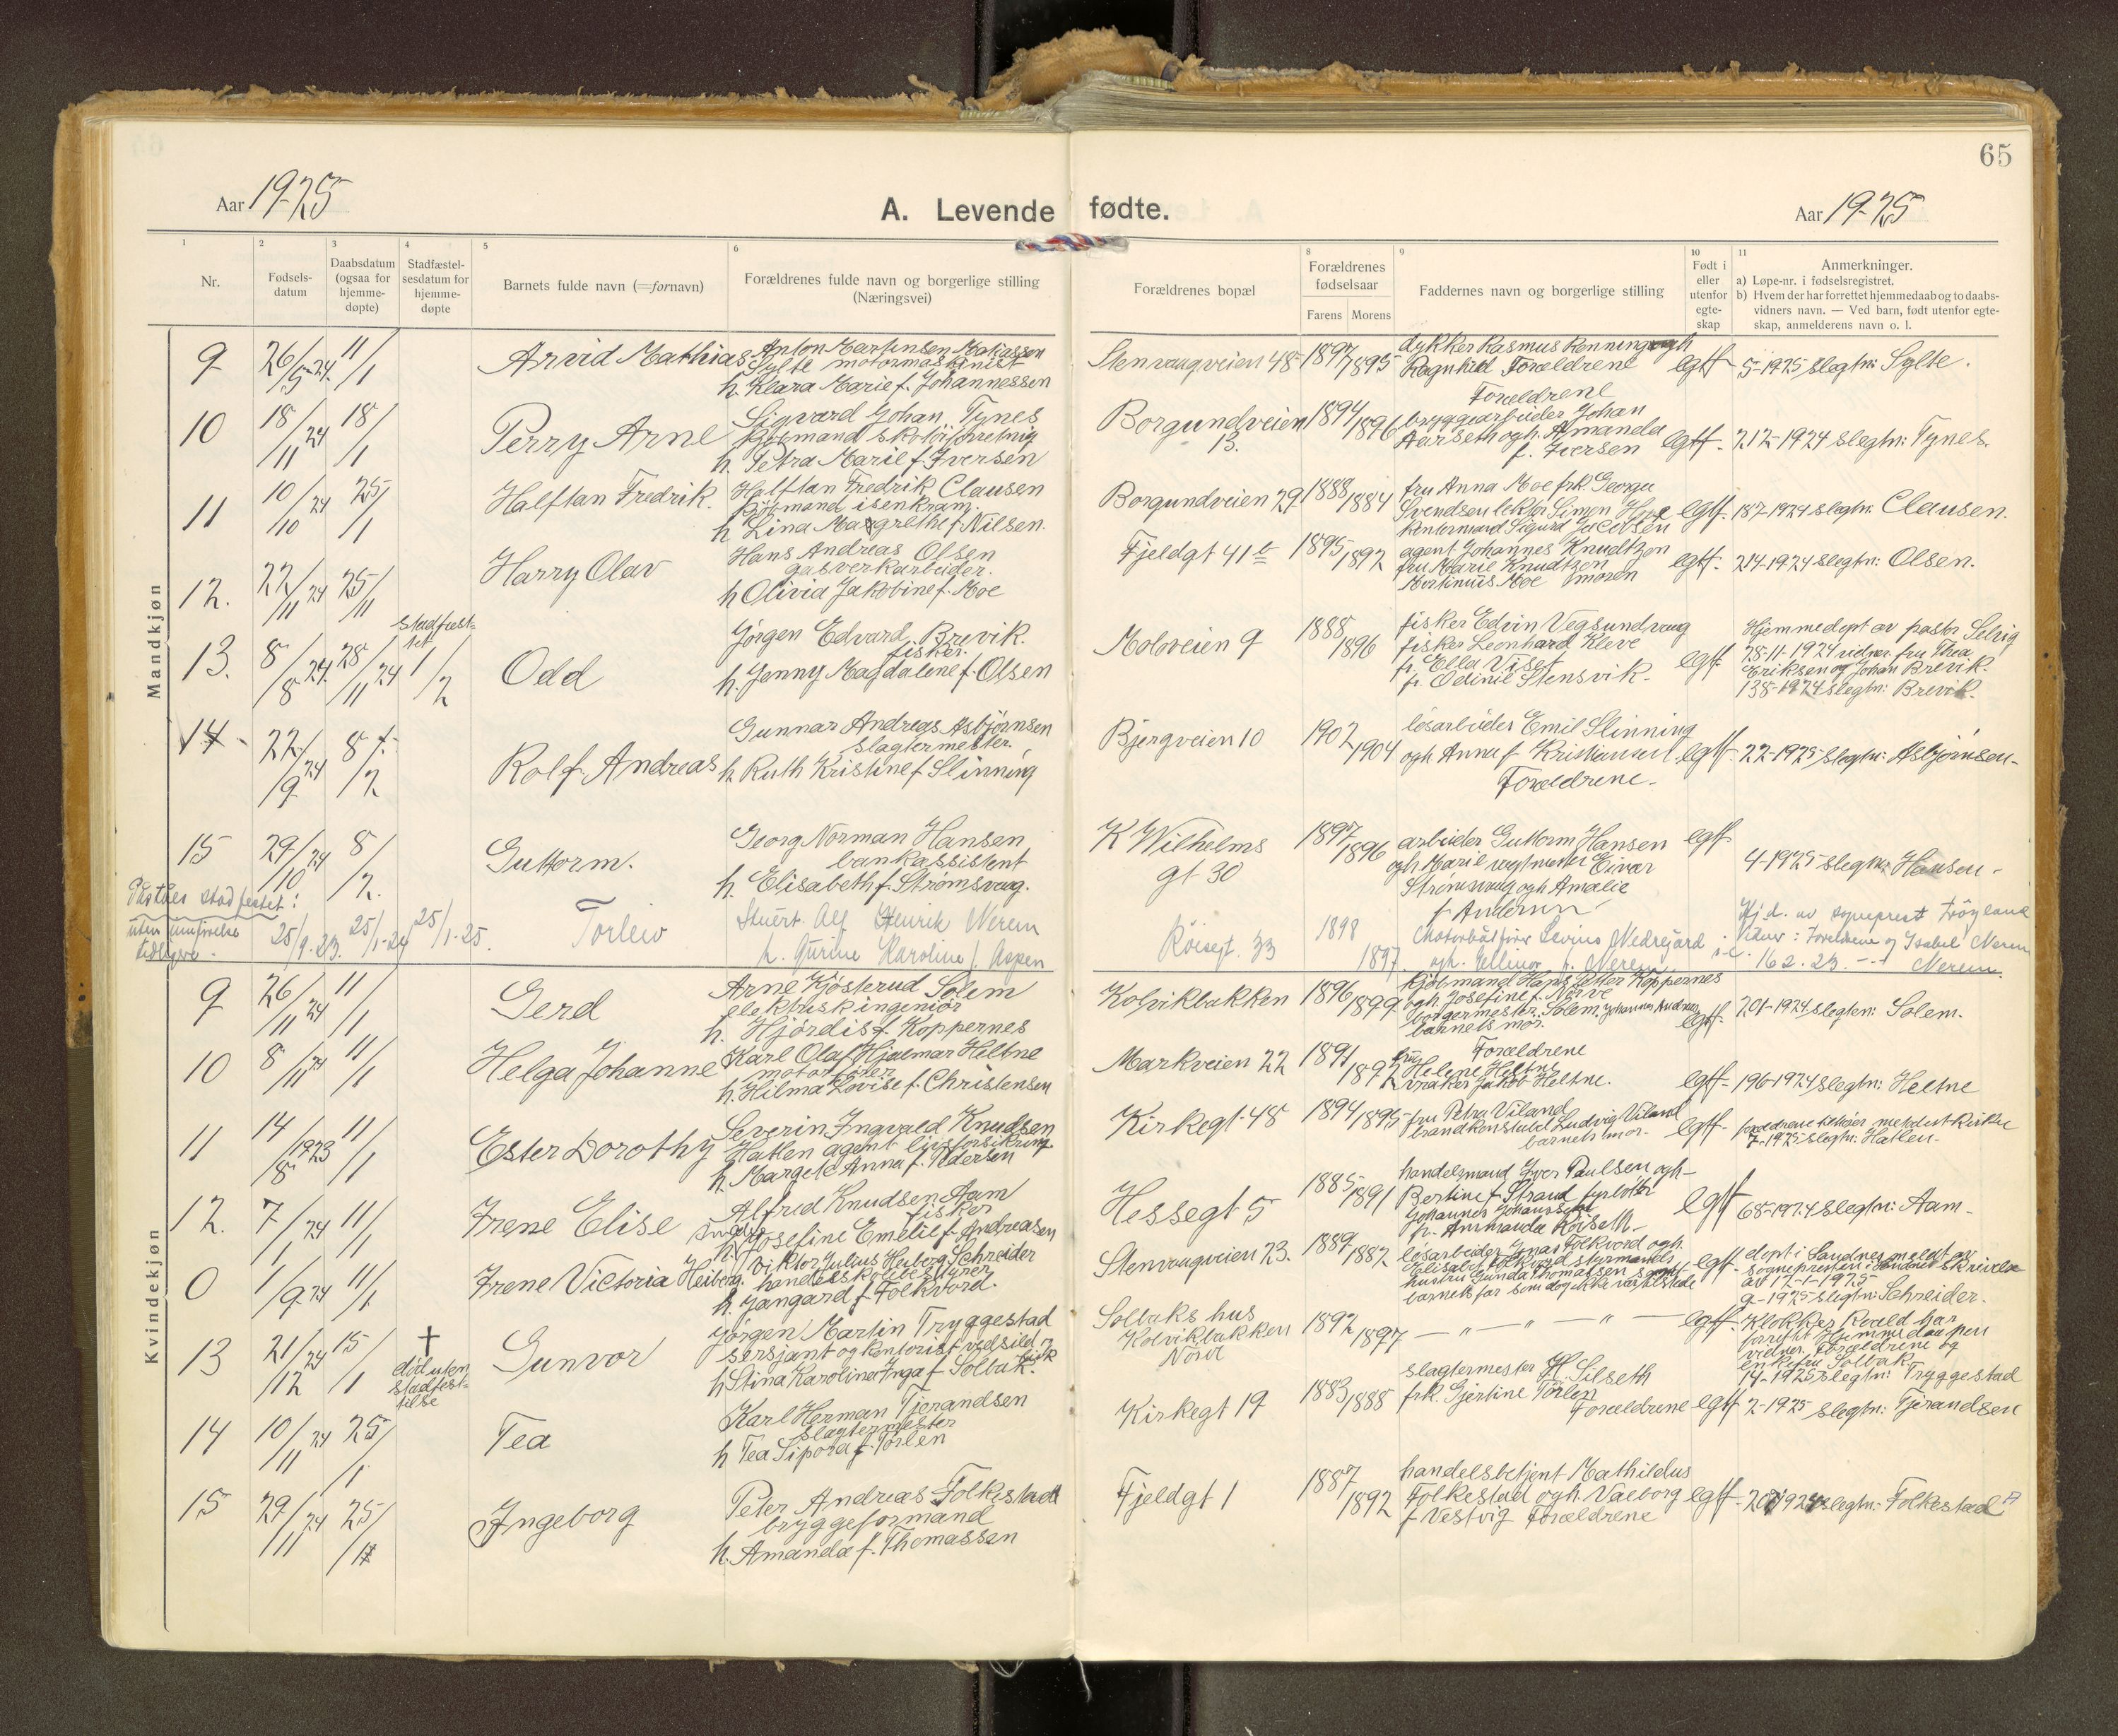 65
Aar 1925
A. Levende fødte.
Aar 1925
1 2 3 4 5 6 8 9 10 11
Nr.
Fødsels-
datum
Daabsdatum
(ogsaa for
hjemme-
døpte)
Stadfæstel-
sesdatum for
hjemme-
døpte
Barnets fulde navn (=fornavn)
Forældrenes fulde navn og borgerlige stilling
(Næringsvei)
Forældrenes bopæl
Forældrenes
fødselsaar
Farens Morens
Faddernes navn og borgerlige stilling
Født i
eller
utenfor
egte-
skap
Anmerkninger.
a) Løpe-nr. i fødselsregistret.
b) Hvem der har forrettet hjemmedaab og to daabs-
vidners navn. — Ved barn, født utenfor egte-
skap, anmelderens navn o. l.
Mandkjøn
9 26/5 24 11/1 Arvid Mathias
Anton Martinsen Matiassen
Sylte motormaskinist
h. Klara Marie f. Johannessen
Stenvaagveien 48 1897 1895
dykker Rasmus Renning ogh
Ragnhild Forældrene
egtf 5-1925 slegtn: Sylte.
10 18/11 24 18/1 Perry Arne
Sigvard Johan Tynes
h. Petra Marie f. Iversen
Borgundveien
13. 1894 1896
Forældrene
bryggearbeider Johan
Aarseth ogh. Amanda
f. Iversen
egtf. 212-1924 slegtn: Tynes.
11 10/10 24 25/1 Halftan Fredrik.
Halftan Fredrik Clausen
kjøbmand isenkram.
h Lina Margrethe f. Nilsen.
Borgundveien 29 1888 1884
fru Anna Moe frk. Georga
Svendsen lektor Simon
Sigurd Jacobsen
egtf. 187-1924 slegtn: Clausen.
12. 22/11 24 25/11 Harry Olav
Hans Andreas Olsen
gasverkarbeider.
h Olivia Jakobine f. Moe
Fjeldgt 41 b 1895 1892
agent Johannes Knudtzon
fru Marie Knudtzon
Martinus Moe moren
egtf. 214-1924 slegtn: Olsen.
13. 8/8 24. 28/11 24 stadfæst-
tet 1/2 Odd
Jørgen Edvard Brevik.
fisker.
h. Jenny Magdalene f. Olsen
Moloveien 9 1888 1896
fisker Edvin Vegsundvaag
fisker Leonhard Kleve
fr. Ella Viset
fr. Odinie Stensvik.
egtf.
Hjemmedøpt av pastor Selvig
28-11-1924 vidner. fru Thea
Eriksen og Johan Brevik.
138-1924 slegtn: Brevik.
14 22/9 24 8/2 Rolf Andreas
Gunnar Andreas Asbjørnsen
slagtermester.
h Ruth Kristine f Slinning
Bjergveien 10 1902 1904
løsarbeider Emil Slinning
ogh Anne f Kristiansen
Forældrene.
egtf. 22-1925 slegtn: Asbjørnsen.
15 29/10 24 8/2. Guttorm.
Georg Norman Hansen
bankassistent
h. Elisabeth f. Strømsvaag.
K Wilhelms
gt 30 1897 1896
arbeider Guttorm Hansen
ogh Marie vegtmester Eivar
Strømsvaag ogh Amalie
f Andersen
egtf 4-1925 slegtn: Hansen.
Paståes stadfestet:
uten
tidligere.
25/9-23. 25/1-24 25/1-25. Torleiv
Stuert. Alf Henrik Nerem
h. Gurine Karoline f. Aspen
Røisegt. 33 1898 1897
Motorbåtfører Sevrins Nedregård
ogh. Ellinor f. Nerem
Hj.d. av sogneprest Frøyland
Vidner: Foreldrene og Isabel Nerem
162-23. Nerem.
Kvindekjøn
9 26/11 24 11/1 Gerd
Arne Kjøsterud Solem
elektrisk ingeniør
h. Hjørdis f. Koppernes
Kolvikbakken 1896 1899
kjøbmand Hans Petter Koppernes
ogh. Josefine f. Nørve
borgermester Solem,
barnets mor.
egtf. 201-1924 slegtn: Solem.
10 8/11 24 11/1 Helga Johanne
Karl Olaf Hjalmar Heltne
h. Hilma Lovise f. Christensen
Markveien 22 1891 1892
Forældrene
frøk Helene Heltne
vraker Jakob Heltne.
egtf. 196-1924 slegtn: Heltne
11 14/8 1923 11/1 Ester Dorothy
Severin Ingvald Knudsen
Hatlen agent livsforsikring
h. Margete Anna f. Pedersen
Kirkegt. 48 1894 1895
fru Petra Viland
brandkonstabel Ludvig Viland
barnets mor.
egtf.
7-1925 slegtn: Hatlen.
12. 7/1 24 11/1 Irene Elise
Alfred Knudsen Aam
fisker
h. Josefine Emelie f. Andreasen
Hessegt 5 1885 1891
handelsmand Iver Paulsen ogh.
Bertine f. Strand
Johannes Johanssen
fr. Ammanda Røiseth.
egtf 68-1924 slegtn: Aam.
0 1/9 24 11/1 Irene Victoria Heiberg.
Viktor Julius Heiberg Schreider
handelsskolebestyrer
h. Jangard f. Folkvord.
Stenvaagveien 23. 1889 1882
løsarbeider Jonas Folkvord ogh.
Elisabet Folkvord styrmands
hustru Gunda Thomassen samt
barnets far som dog ikke var tilstede
egtf. døpt i Sandnes meldt av
sognepresten i Sandnes skrivelse
av 17-1-1925
9-1925 slegtn: Schreider.
13 21/12 24 15/1 †
død uten
stadfest-
telse Gunvor
Jørgen Martin Tryggestad
sersjant og kontorist ved sild og
fisk
h Stina Karoline Inga f. Solbak.
Solbaks hus
Kolvikbakken
Nørve 1892 1897
— " — " — " —
egtf. Klokker Kvald har
forrettet hjemmedaapen
vidner. Forældrene og
enkefru Solbak.
14-1925 slegtn: Tryggestad
14 10/11 24 25/1 Tea
Karl Herman Tjerandsen
slagtermester
h Tea Sipora f. Tørlen
Kirkegt 19 1883 1888
slagtermester H. Silseth
frk. Gjertine Tørlen
Forældrene
egtf 2-1925 slegtn: Tjerandsen
15 29/11 24 25/1 Ingeborg
Peter Andreas Folkestad
bryggeformand
h. Amanda f. Thomassen
Fjeldgt 1 1887 1892
handelsbetjent Mathildus
Folkestad ogh. Valborg
f Vestvig Forældrene
egtf. slegtn: Folkestad